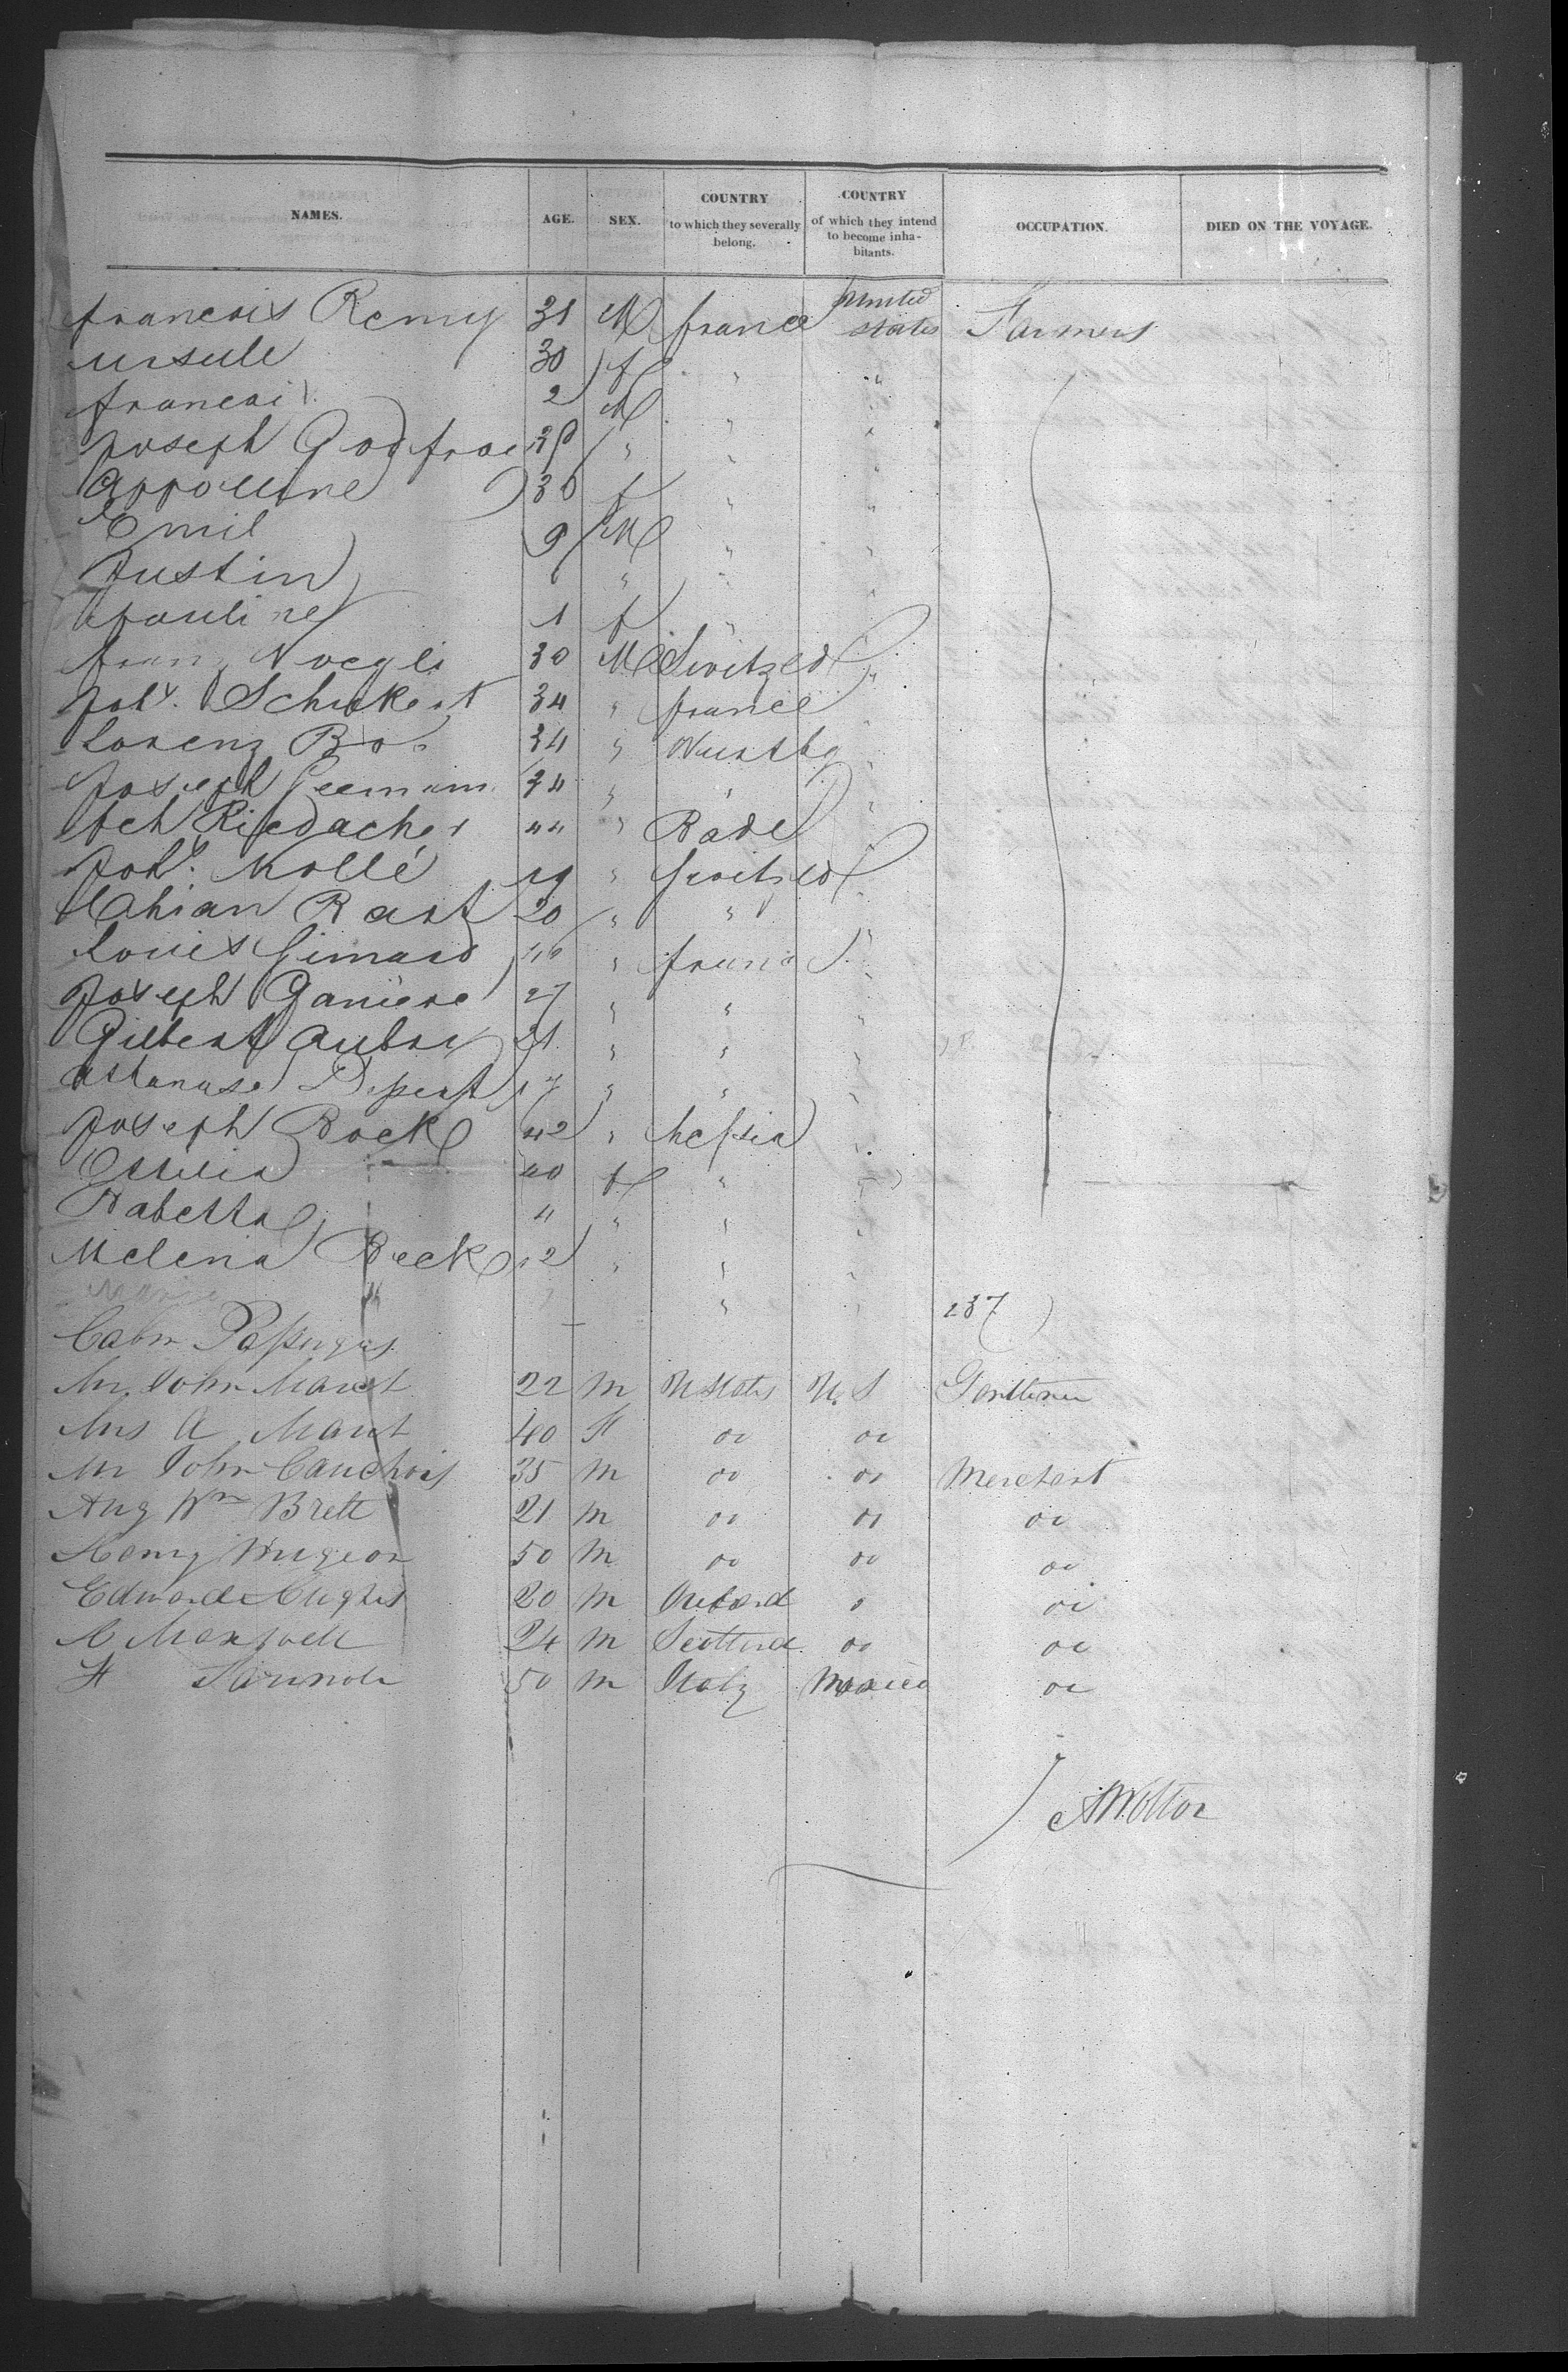 NAMES. AGE. SEX. COUNTRY to which they severally belong. COUNTRY of which they intend to become inhabitants. OCCUPATION. DIED ON THE VOYAGE.
francois Remy 31 M france united states Farmers
ursule 30 f " "
francois 2 M " "
Joseph Godfroe " " "
Appoline 30 f " "
Emil 9 M " "
Justin 6 " " "
pauline 1 f " "
franz Voegli 30 M Switzed "
Joh. Schukert 34 " france "
Lorenz 34 " Wurtbg "
Joseph 34 " " "
Riedacher 44 " Bade "
Joh. Kolle 19 " Switzed "
Rast 20 " " "
Louis Simard 46 " france "
Joseph Ganiere 27 " " "
Gilbert Aubry 21 " " "
Attanase 17 " " "
Joseph Bock 42 " hessia "
Ottilia " 40 f " "
Babetta " 4 " " "
Melena Beck 12 " " "
Marie " " " 237
Cabin Passengers
Mr. John Maret 22 m U States U. S Gentleman
Mrs A Maret 40 F do do
Mr John Cauchois 35 m do do Merchant
Aug Wm Brett 21 m do do do
Henry Hugeon 50 m do do do
Edward Hughes 20 m Ireland " do
A Maxwell 24 m Scotland do do
F 50 m Italy Mexico do
A Wotton